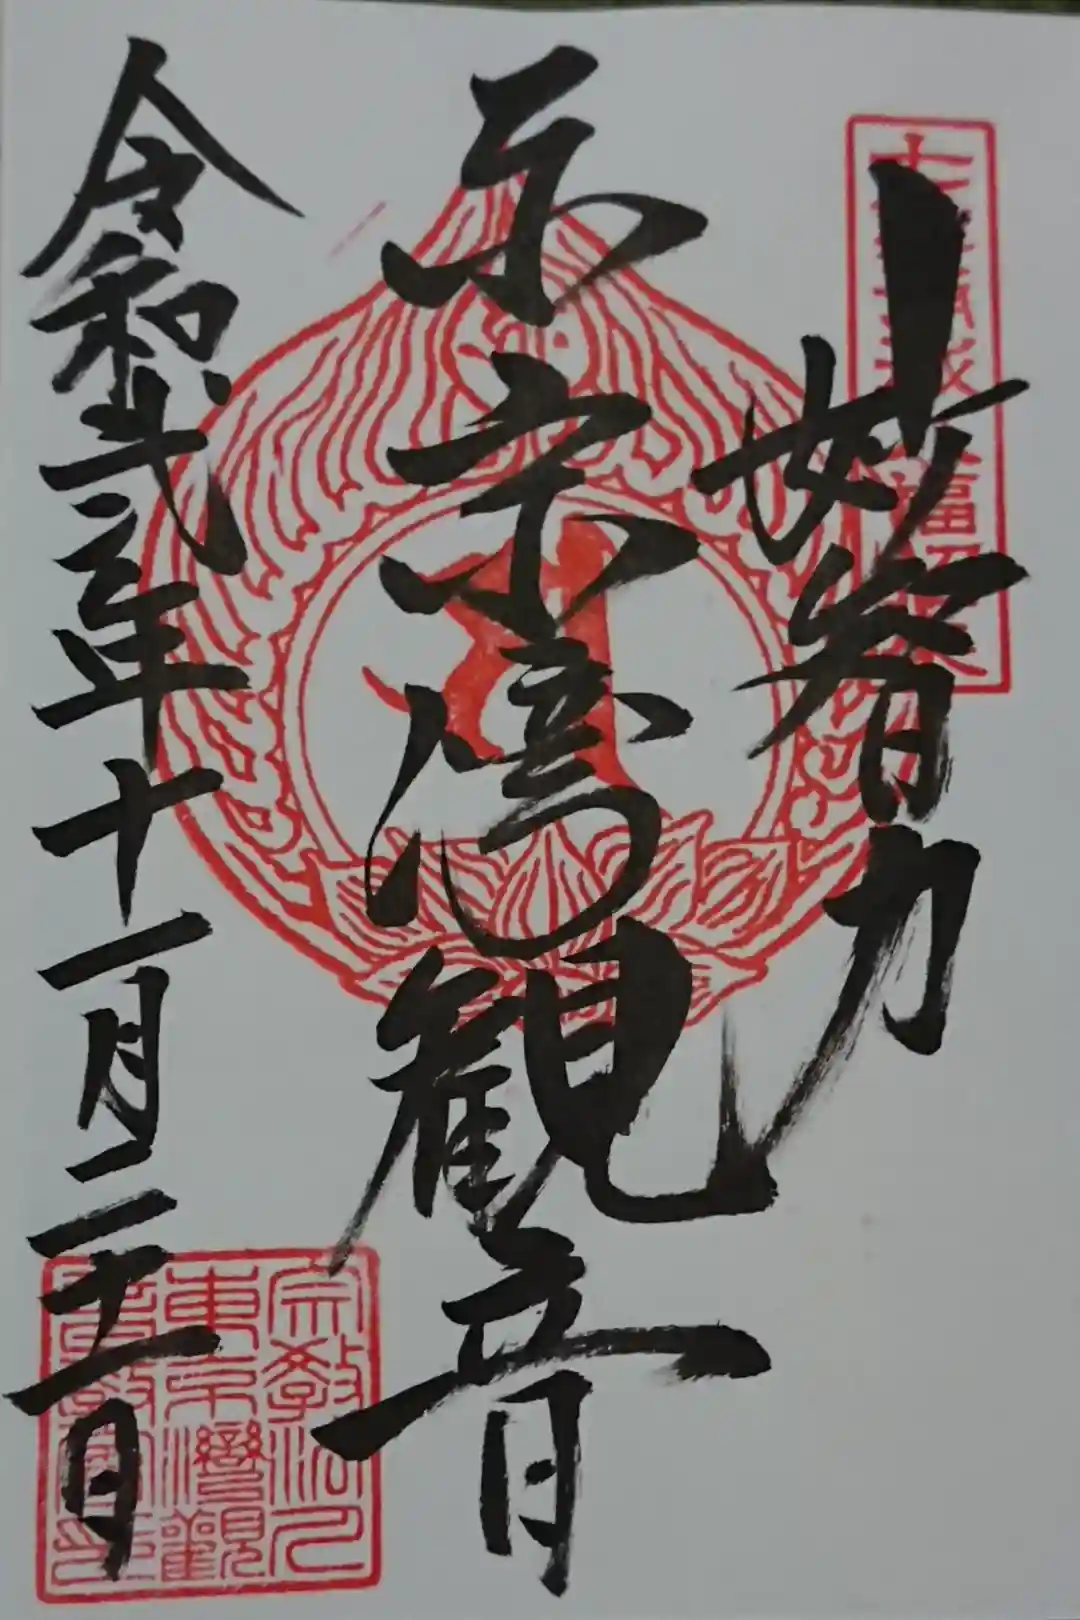 妙智力
東京湾観音
令和弐年十一月二十一日
宗教法人
東京灣觀
音教